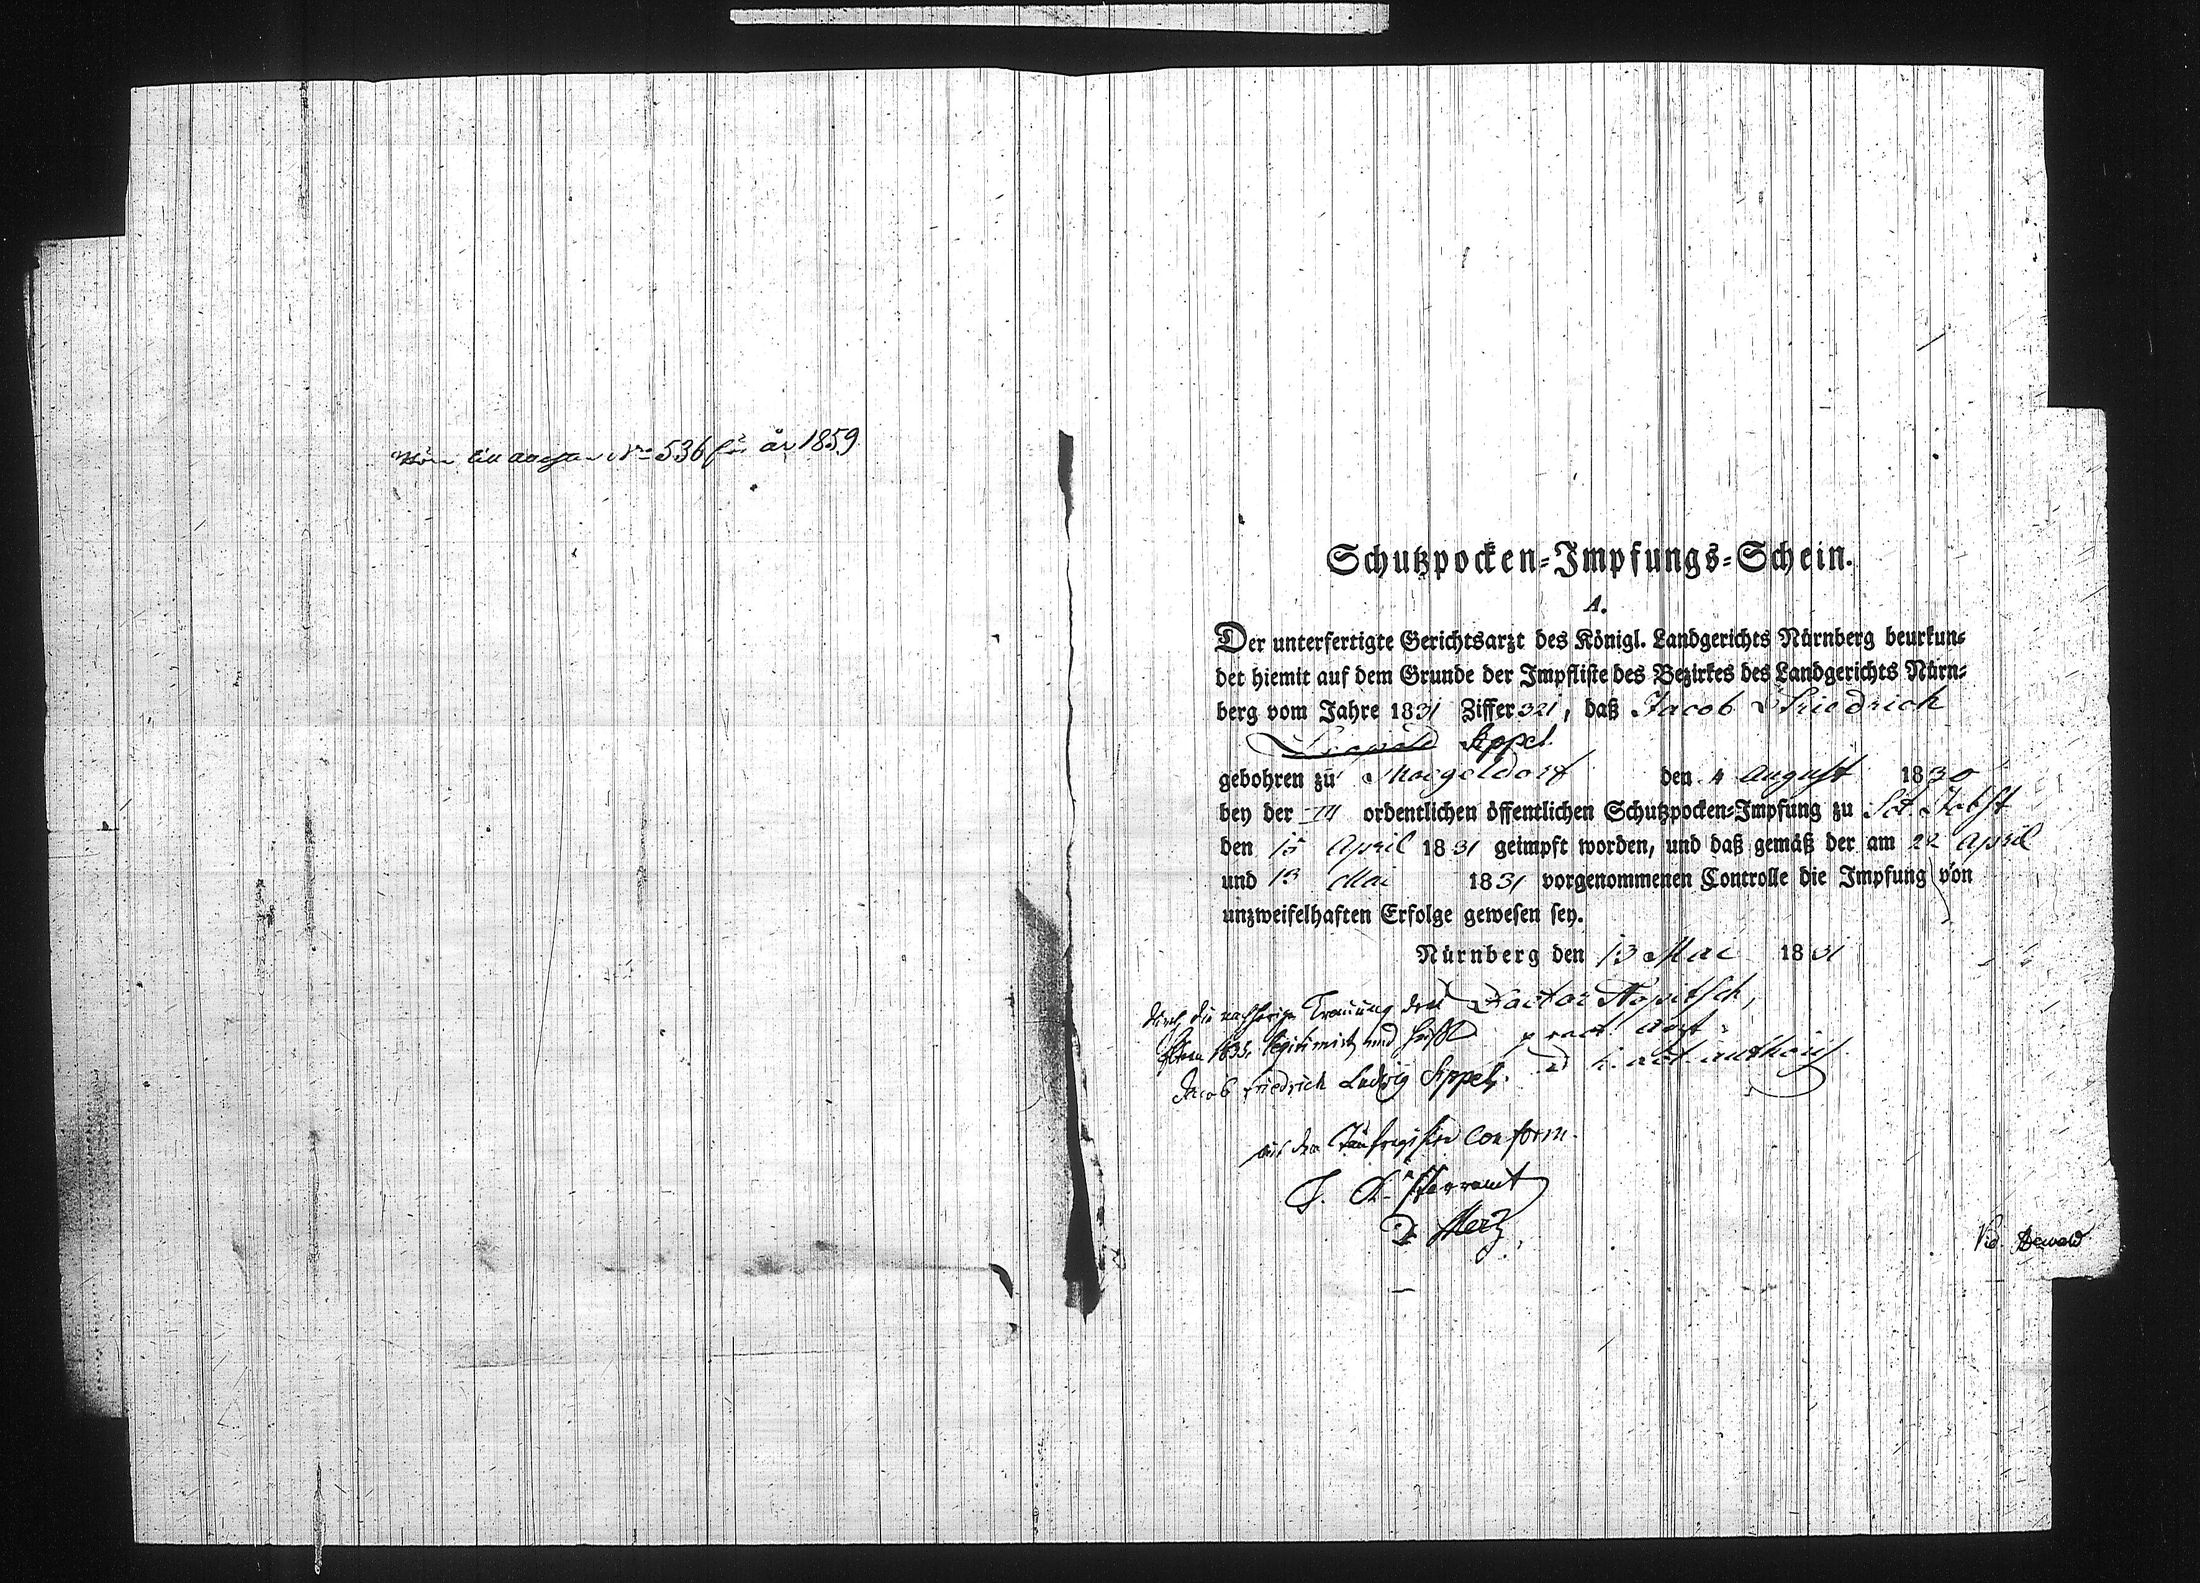 No 536 för år 1859
Schutzpocken-Impfungs-Schein.
A.
Der unterfertigte Gerichtsarzt des Königl. Landgerichts Nürnberg beurkun-
det hiemit auf dem Grunde der Impfliste des Bezirkes des Landgerichts Nürn-
berg vom Jahre 1831 Ziffer 321, daß Jacob Friedrich
Appel
gebohren zu Moegeldorf den 4 August 1830
bey der III ordentlichen öffentlichen Schutzpocken-Impfung zu Sct. Jobst
den 15 April 1831 geimpft worden, und daß gemäß der am 22 April
und 13 Mai 1831 vorgenommenen Controlle die Impfung von
unzweifelhaften Erfolge gewesen sey.
Nürnberg den 13 Mai 1831
Durch die nachherige Trauung der Doctor Kopitsch,
Eltern 1835 legitimirt und heißt pract. Arzt
Jacob Friedrich Ludwig Appel.
mit dem Taufregister conform.
K. Pfarramt
D. Merz
Vid.